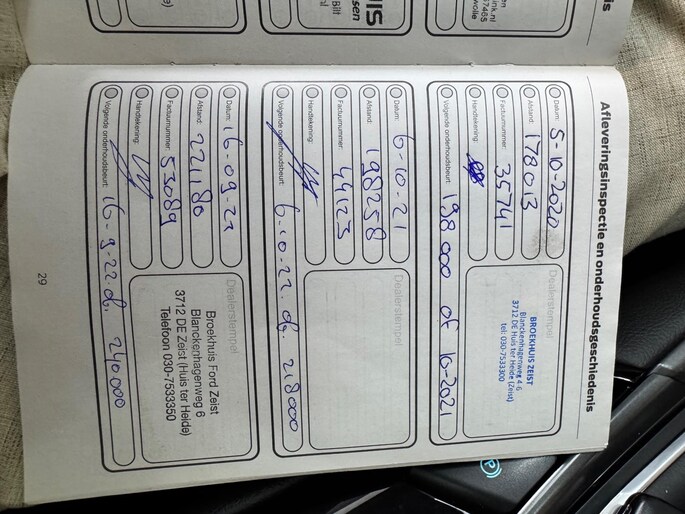 Afleveringsinspectie en onderhoudsgeschiedenis
Datum: 5-10-2020
Afstand: 178013
Factuurnummer: 35741
Handtekening:
Volgende onderhoudsbeurt: 198000 of 10-2021
Dealerstempel
BROEKHUIS ZEIST
Blanckenhagenweg 4-6
3712 DE Huis ter Heide (Zeist)
tel: 030-7533300
Datum: 6-10-21
Afstand: 198258
Factuurnummer: 44123
Handtekening:
Volgende onderhoudsbeurt: 6-10-22. of. 218000
Dealerstempel
Datum: 16-09-22
Afstand: 221180
Factuurnummer: 53089
Handtekening:
Volgende onderhoudsbeurt: 16-9-22. of. 240.000
Dealerstempel
Broekhuis Ford Zeist
Blanckenhagenweg 6
3712 DE Zeist (Huis ter Heide)
Telefoon 030-7533350
29